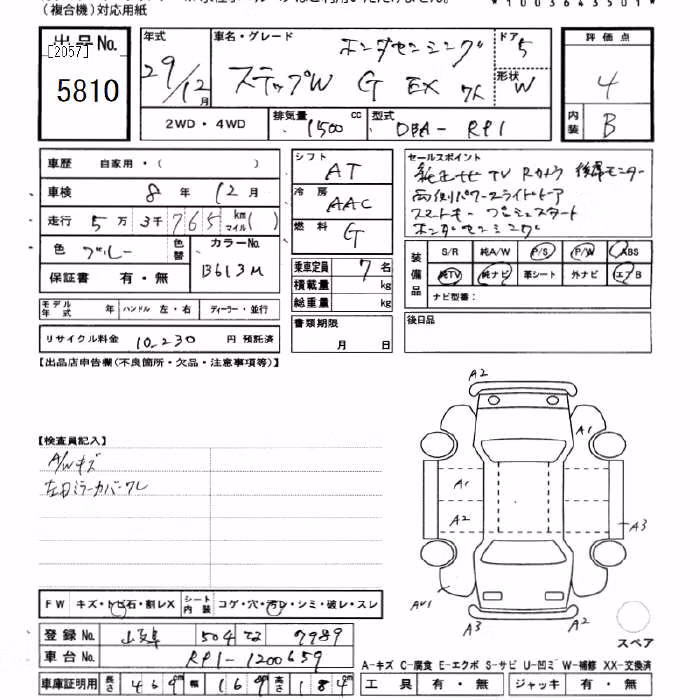 (複合機)対応用紙
*1003643501*
出品No.
[2057]
5810
年式
29/12
月
車名・グレード
ホンダセンシング
ステップW G EX 7人
ドア
5
形状
W
評価点
4
内装
B
2WD・4WD
排気量
1500
cc
型式
DBA-RP1
車歴 自家用・( )
車検 8年 12月
走行 5万3千765 km マイル( )
色 ブルー
色替
カラーNo.
B613M
保証書 有・無
シフト AT
冷房 AAC
燃料 G
乗車定員 7名
積載量 kg
総重量 kg
セールスポイント
純正ナビ TV Rカメラ 後席モニター
両側パワースライドドア
スマートキー プッシュスタート
ホンダセンシング
装備品
S/R 純A/W P/S P/W ABS
純TV 純ナビ 革シート 外ナビ エアB
ナビ型番:
モデル年式 年 ハンドル 左・右 ディーラー・並行
リサイクル料金 10,230 円 預託済
書類期限
月 日
後日品
【出品店申告欄(不良箇所・欠品・注意事項等)】
【検査員記入】
A/Wキズ
左ドアミラーカバーワレ
A2
A1
A1
A2
A3
AW1
A3
A2
スペア
FW キズ・トビ石・割レX
シート内装 コゲ・穴・汚レ・シミ・破レ・スレ
登録No. 岐阜 504 て 7989
車台No. RP1-1200659
車庫証明用 長さ 469cm 幅 169cm 高さ 184cm
A-キズ C-腐食 E-エクボ S-サビ U-凹ミ W-補修 XX-交換済
工具 有・無 ジャッキ 有・無